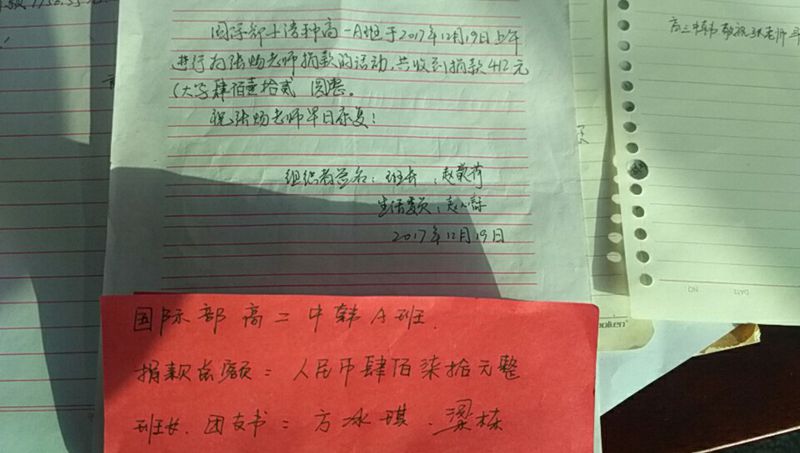 国际部小语种高一A班于2017年12月19日上午
进行为张炀老师捐款的活动,共收到捐款412元
(大字肆佰壹拾贰 圆整。
祝张炀老师早日康复!
组织者签名:班长:赵
生活委员:
2017年12月19日
高三中韩 张老师早
国际部高二中韩A班.
捐款总额:人民币肆佰柒拾元整
班长、团支书:方冰琪、梁栋
DATE
NO